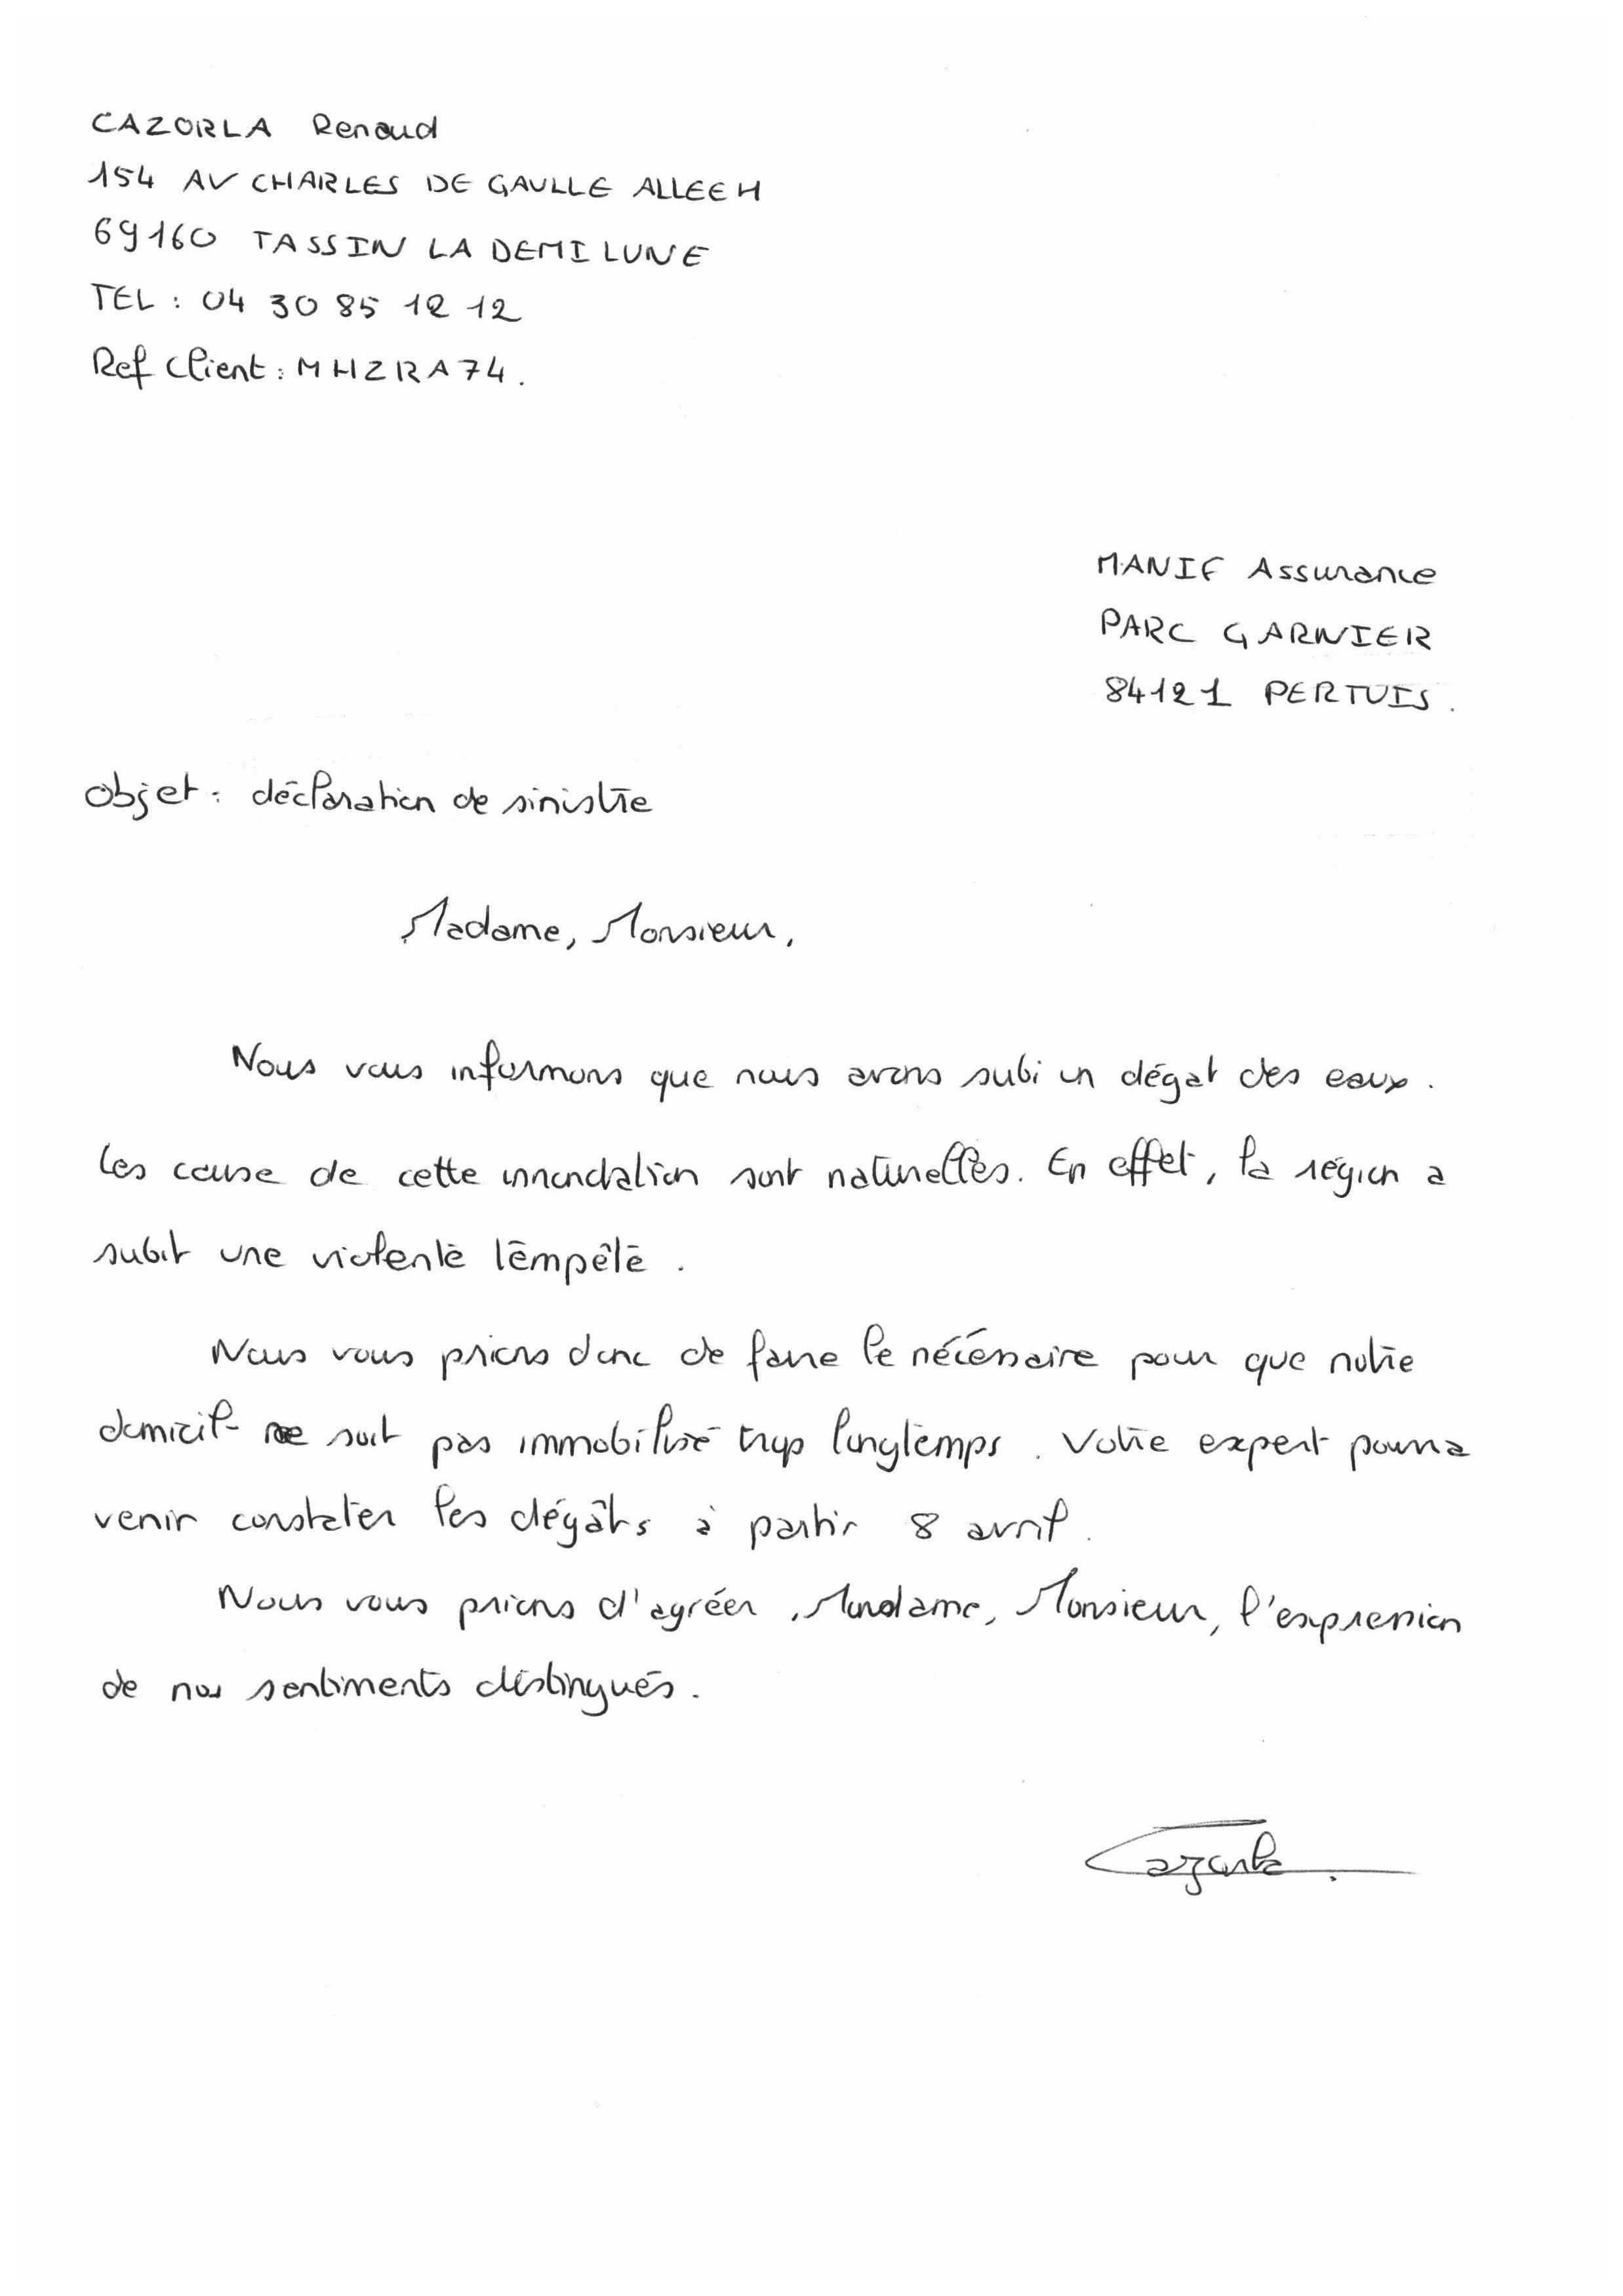 CAZORLA Renaud
154 AV CHARLES DE GAULLE ALLEE H
69160 TASSIN LA DEMI LUNE
TEL : 04 30 85 12 12
Ref Client : MHZRA74.
MANIF Assurance
PARC GARNIER
84121 PERTUIS.
Objet : déclaration de sinistre
Madame, Monsieur,
Nous vous informons que nous avons subi un dégat des eaux.
Les cause de cette innondation sont naturelles. En effet, la région a
subit une violente tempête.
Nous vous prions donc de faire le nécéssaire pour que notre
domicil ne soit pas immobilisé trop longtemps. Votre expert pourra
venir constater les dégâts à partir 8 avril.
Nous vous prions d'agréer, Madame, Monsieur, l'expression
de nos sentiments distingués.
Cazorla.